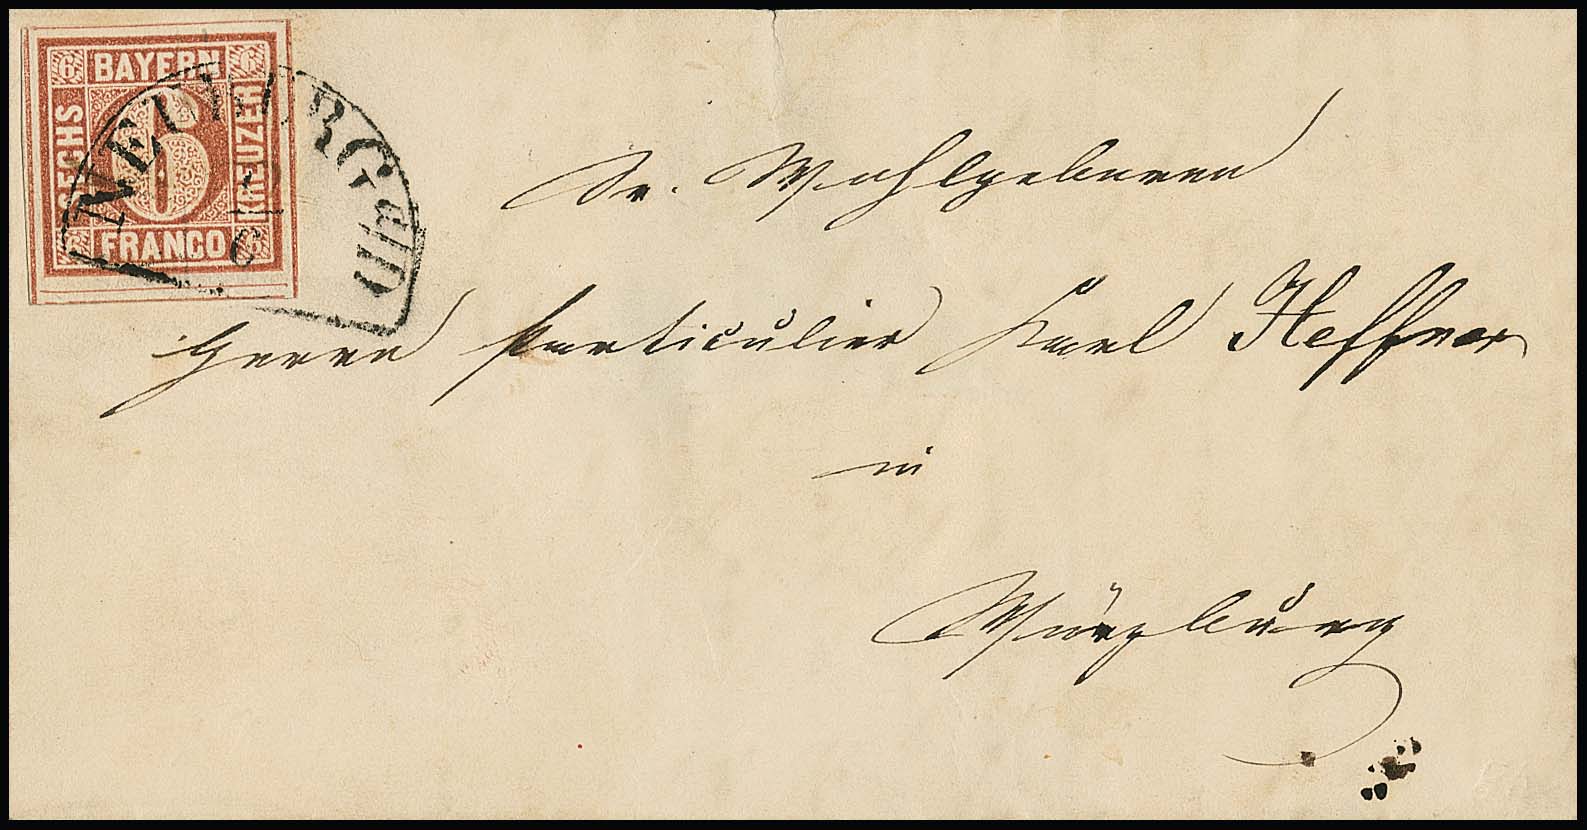 6 BAYERN 6
SECHS 6 KREUZER
6 FRANCO 6
NEUBURG a/D
Sr. Wohlgeboren
Herrn Particulier Karl Heffner
in
Würzburg